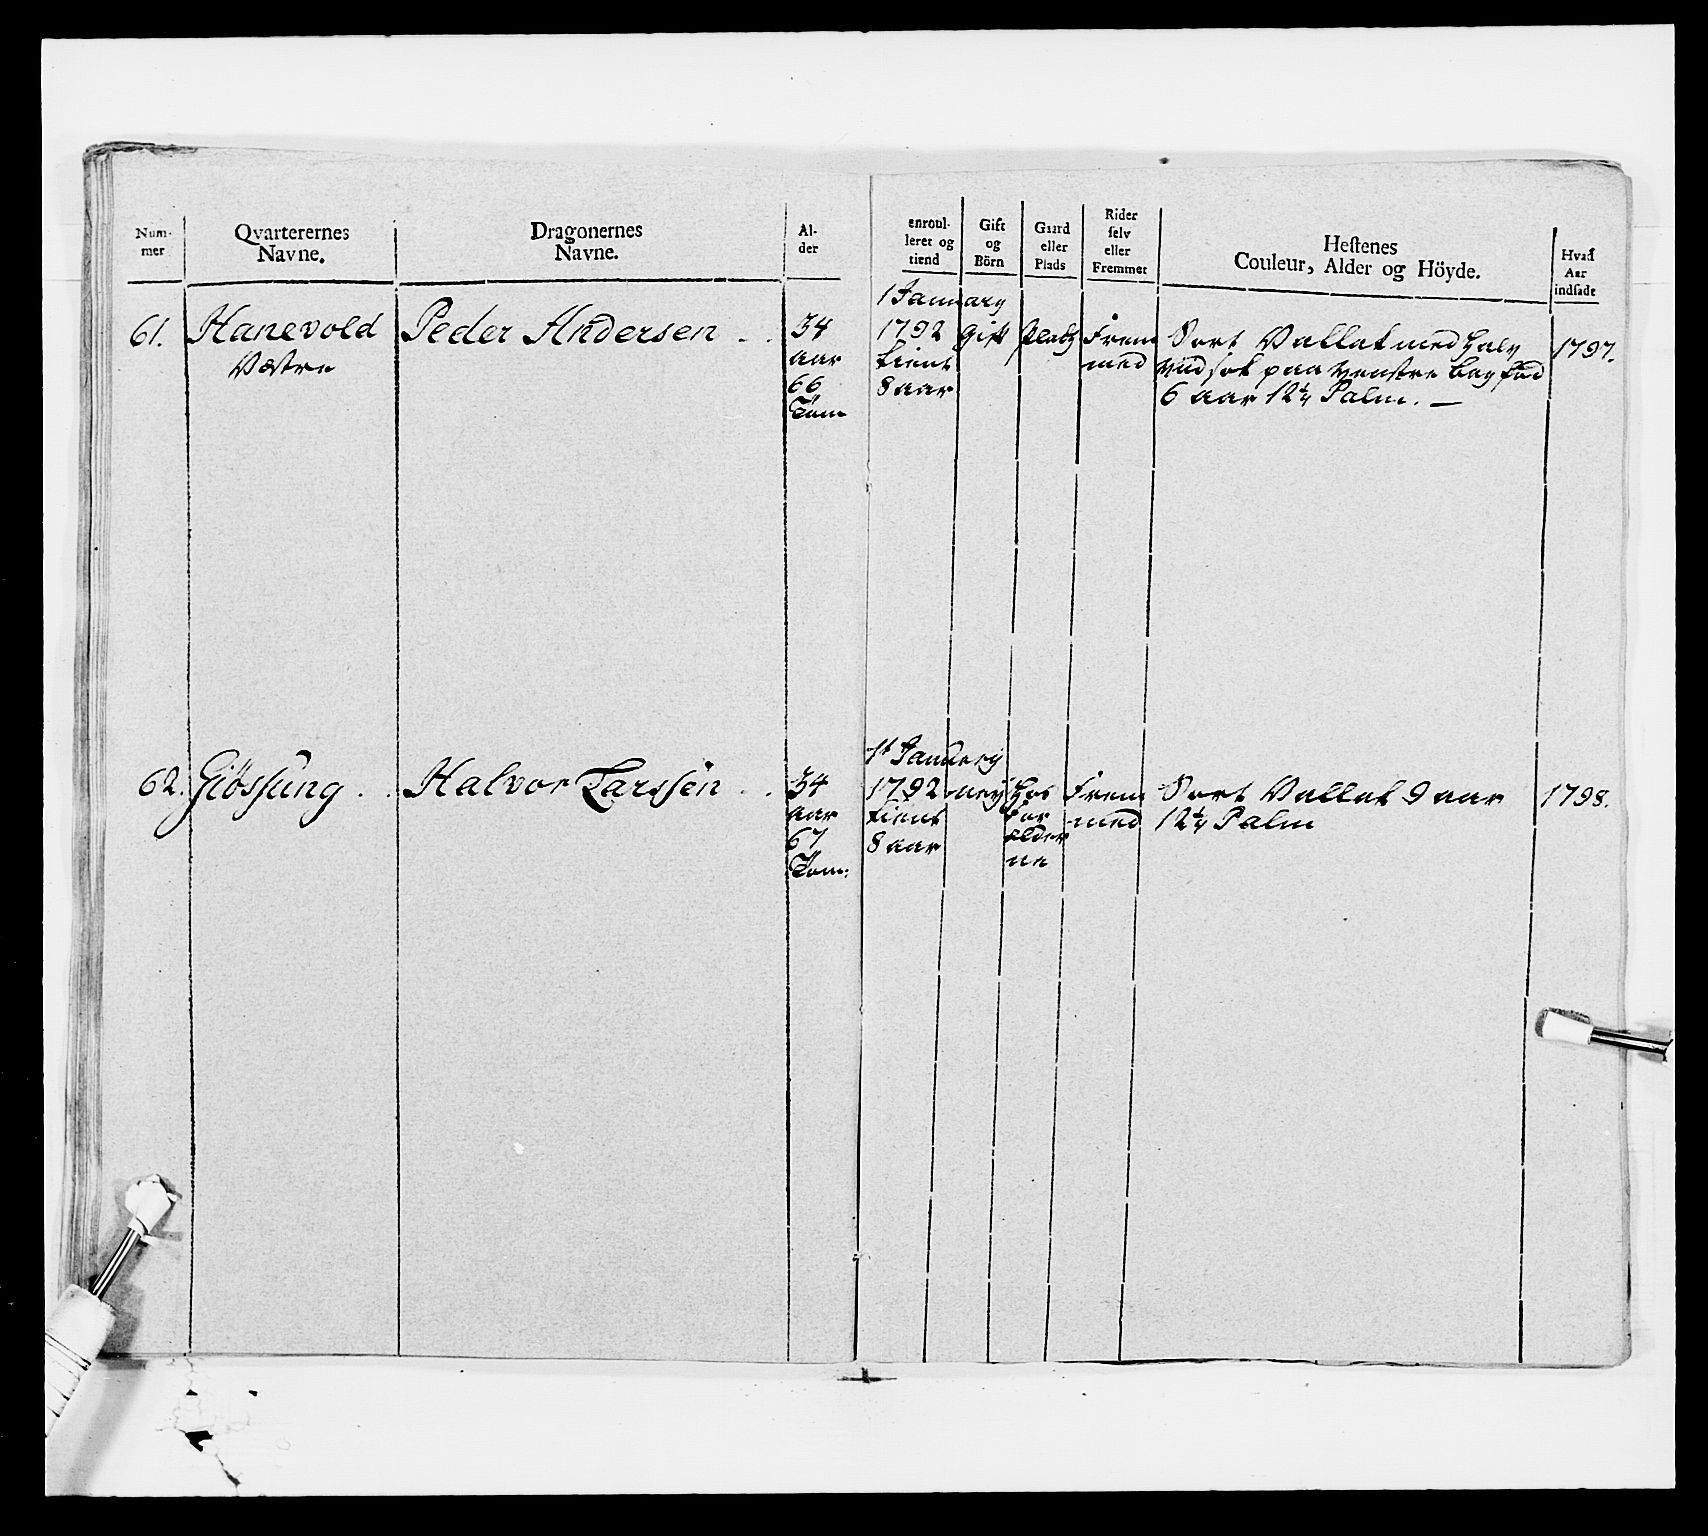 Num-
mer
Qvarterernes
Navne.
Dragonernes
Navne.
Al-
der
enroul-
leret og
tiend
Gift
og
Börn
Gaard
eller
Plads
Rider
selv
eller
Fremmet
Hestenes
Couleur, Alder og Höyde.
Hvad
Aar
indsadt
61.
Hanevold
Væstre
Peder Andersen
34
aar
66
Tom
1 January
1792
tient
8 aar
Gift
Plads
Frem
med
Sort Vallak med halv
vid sok paa venstre bag fod
6 aar 12¼ Palm. —
1797.
62.
Giössung
Halvor Larssen
34
aar
67
Tom:
1st January
1792
tient
8 aar
ney
hos
for
ælder
ne
Frem
med
Sort Vallak 9 aar
12¼ Palm
1798.